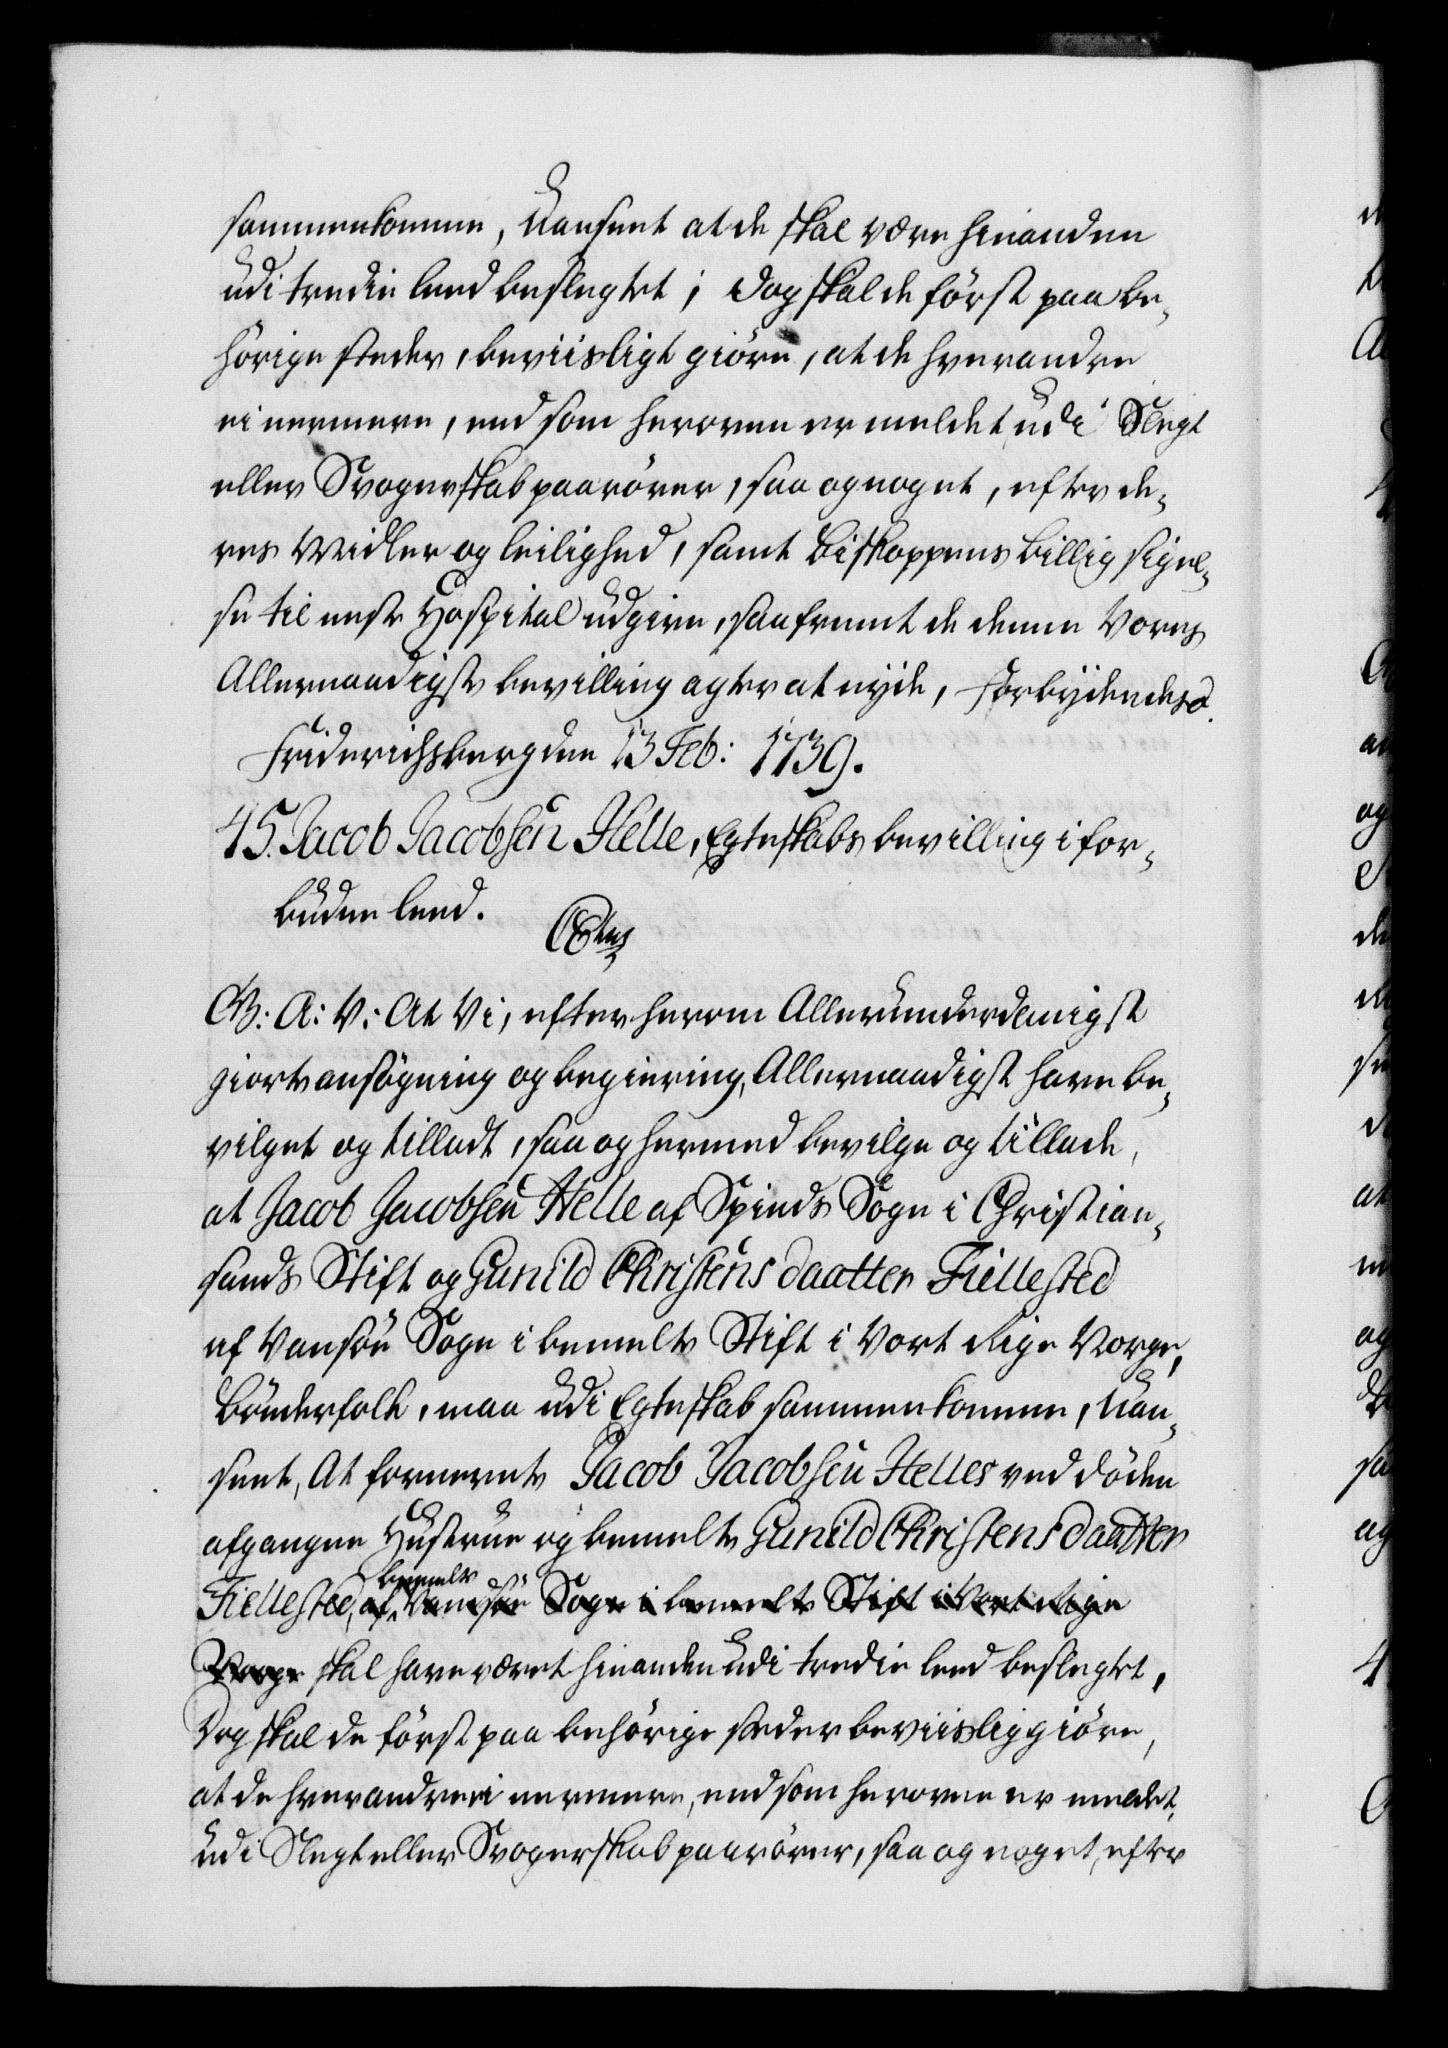 sammenkomme, Uanseet at de skal være hinanden
udi tredie leed beslegtet; dog skal de först paa be-
hörige steder, beviisligt giöre, at de hverandre
ei nermere, end som heroven er meldet udi Slegt
eller Svogerskab paarörer, saa og noget, efter de-
res Midler og leilighed, samt Biskoppens billig sigel-
se til nest Hospital udgive, saafremt de denne Vores
Allernaadigste bevilling agter at nyde, Forbydendes
Friderichsberg den 13 Feb: 1739.
45. Jacob Jacobsen Helle, Egteskabs bevilling i for-
budne leed.
G: A: V: At Vi, efter herom Allerunderdanigst
giorte ansögning og begiering, Allernaadigst have be-
vilget og tilladt, saa og hermed bevilge og tillade,
at Jacob Jacobsen Helle af Spinds Sogn i Christian-
sands Stift og Gunild Christens daatter Fiellested
af Vansöe Sogn i bemelte Stift i Vort Rige Norge,
Bönderfolk, maa udi Egteskab sammenkomme, Uan-
seet, At fornevnte Jacob Jacobsen Helles ved döden
afgangne Hustrue og bemelte Gunild Christensdaatter
Fiellested, af bemelte Vansöe Sogn i bemelte Stift i Vort Rige
Norge skal have været hinanden udi tredie leed beslegtet,
Dog skal de först paa behörige steder beviislig giöre,
at de hverandre ei nermere, end som heroven er meldet,
udi Slegt eller Svogerskab paarörer, saa og noget, efter